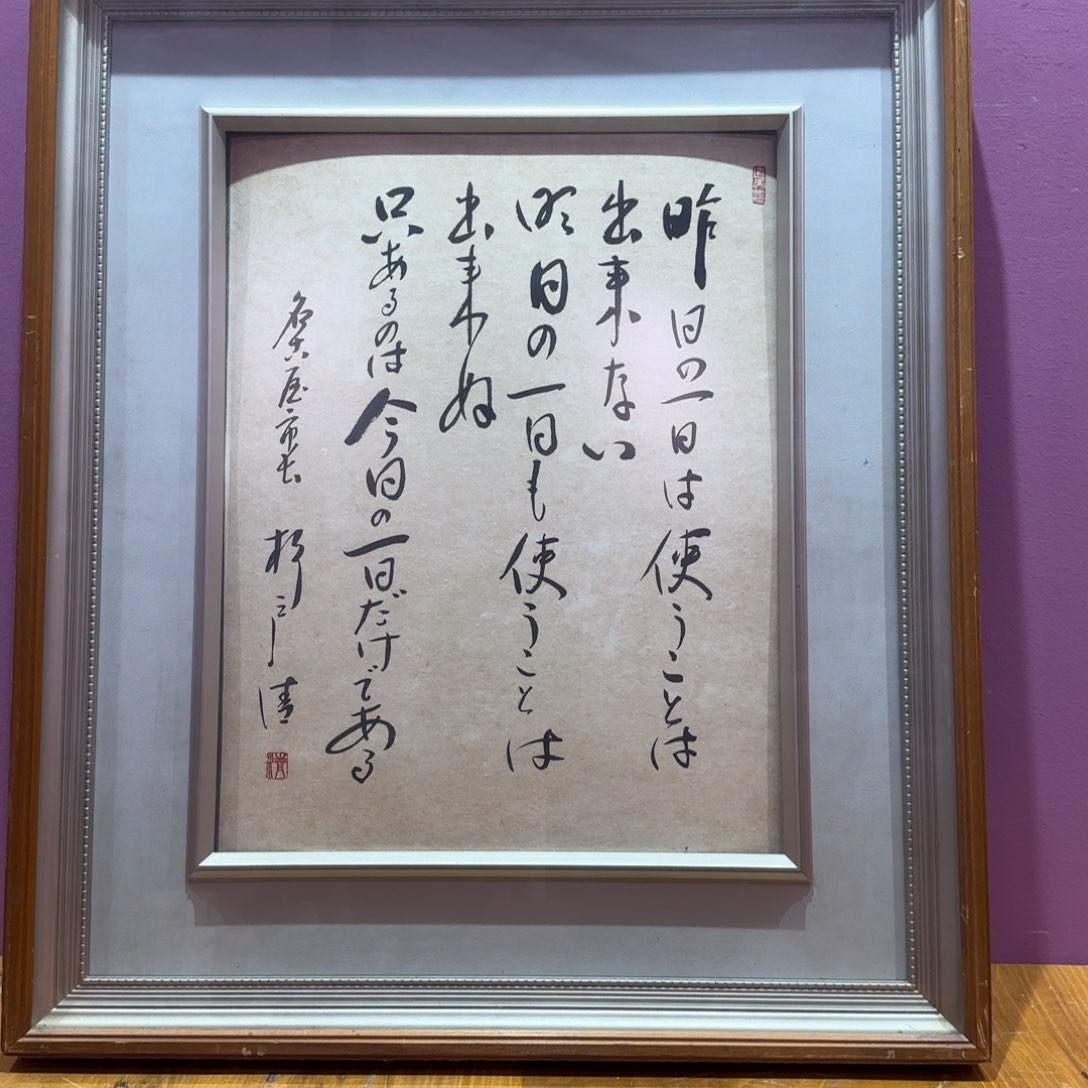 昨日の一日は使うことは
出来ない
明日の一日も使うことは
出来ぬ
只あるのは今日の一日だけである
名古屋市長 杉戸清